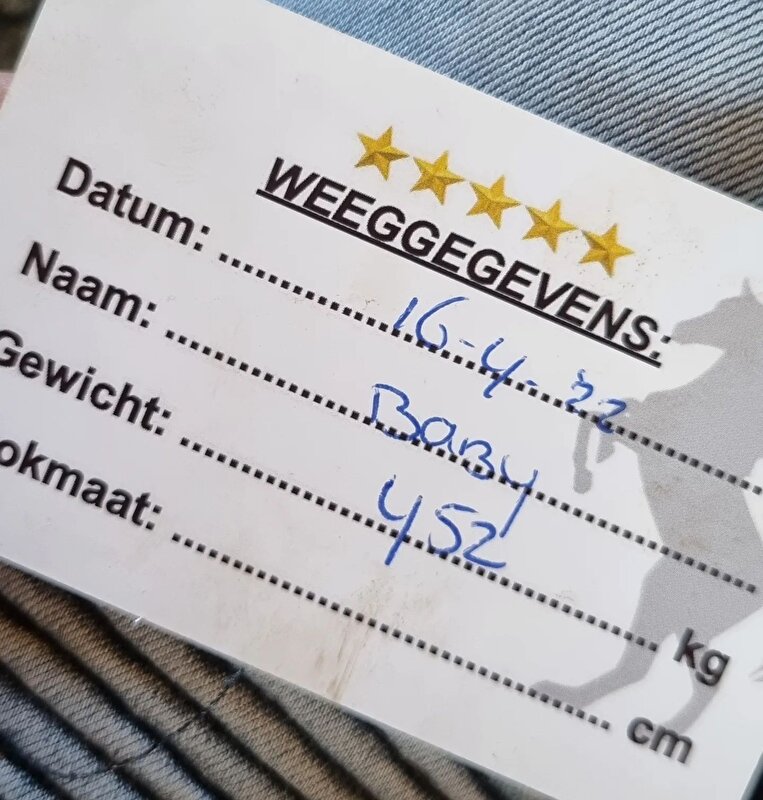 WEEGGEGEVENS:
Datum: 16-4-'22
Naam: Baby
Gewicht: 452 kg
okmaat: cm